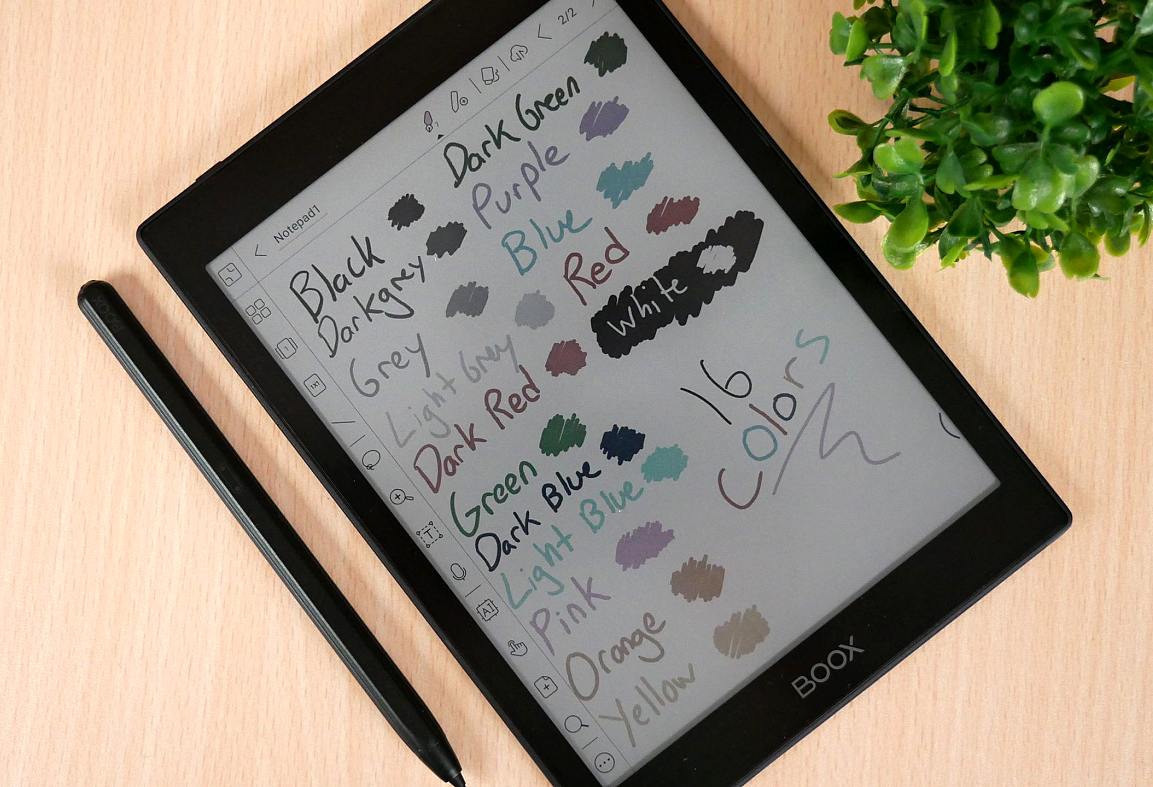 2/2
Notepad1
Black
Darkgrey
Grey
Light Grey
Dark Red
Green
Dark Blue
Light Blue
Pink
Orange
Yellow
Dark Green
Purple
Blue
Red
White
16
Colors
BOOX